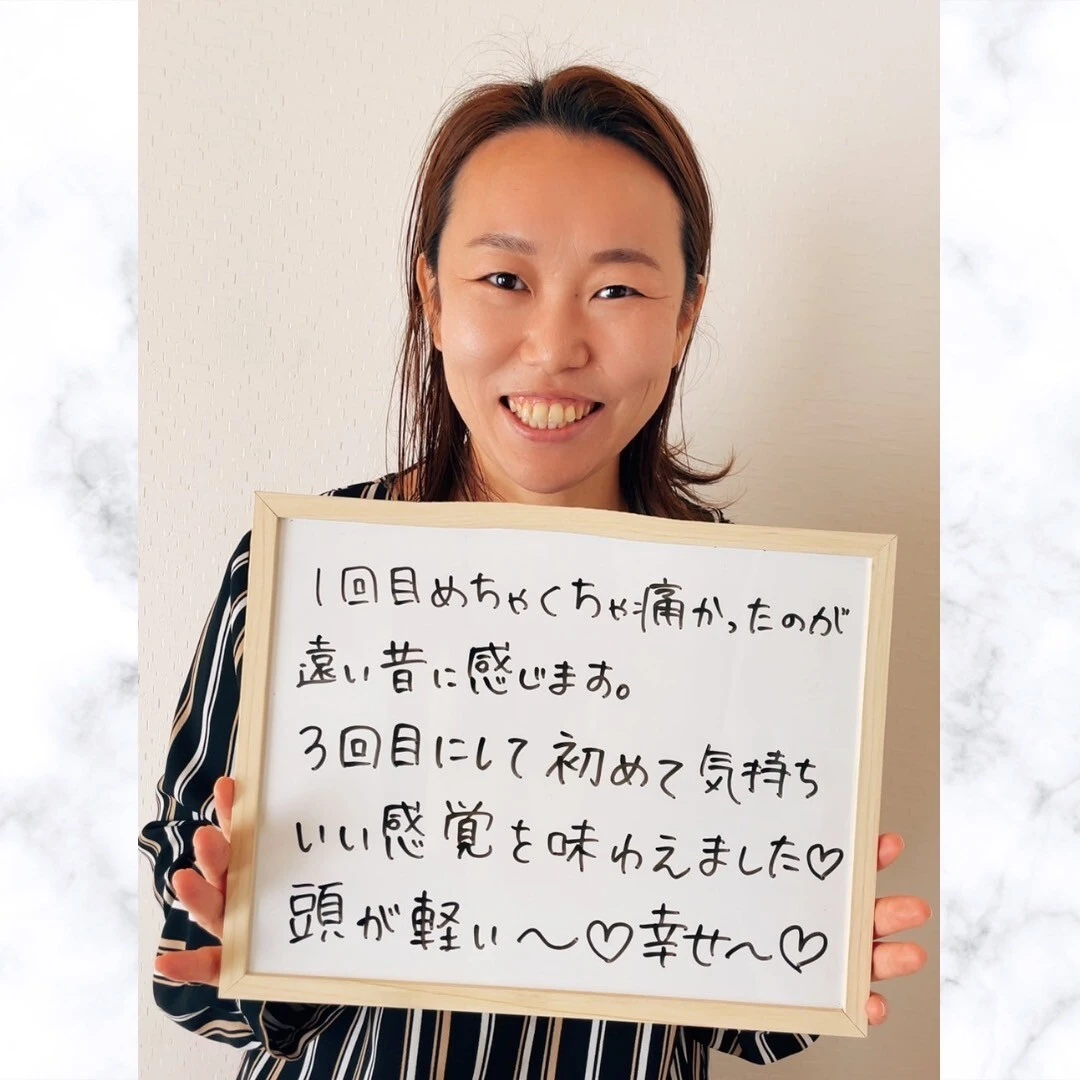 1回目めちゃくちゃ痛かったのが
遠い昔に感じます。
3回目にして初めて気持ち
いい感覚を味わえました♡
頭が軽い〜♡幸せ〜♡